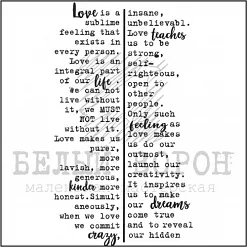 Love is a
sublime
feeling that
exists in
every person.
Love is an
integral part
of our life.
We can't
live without
it, we MUST
NOT live
without it.
Love makes us
purer,
more
lavish, more
generous,
kinder more
honest.Simult
aneously,
when we love
we commit
crazy,
insane,
unbelievabl.
Love teaches
us to be
strong,
self-
righteous,
open to
other
people.
Only such
feeling as
love makes
us do our
outmost,
launch our
creativity.
It inspires
us to make
our dreams
come true
and to reveal
our hidden